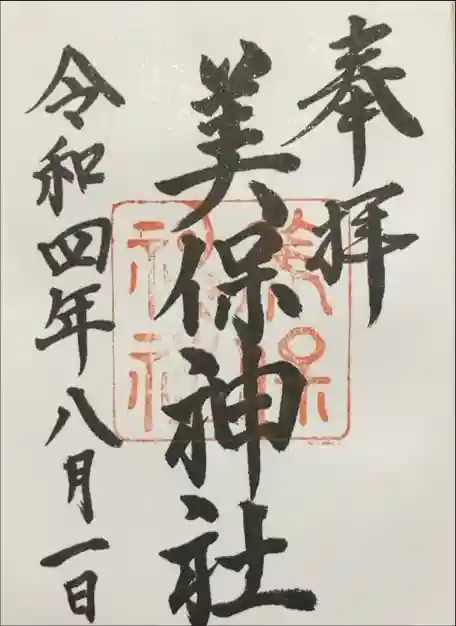 奉拝
美保神社
美保
神社
令和四年八月一日